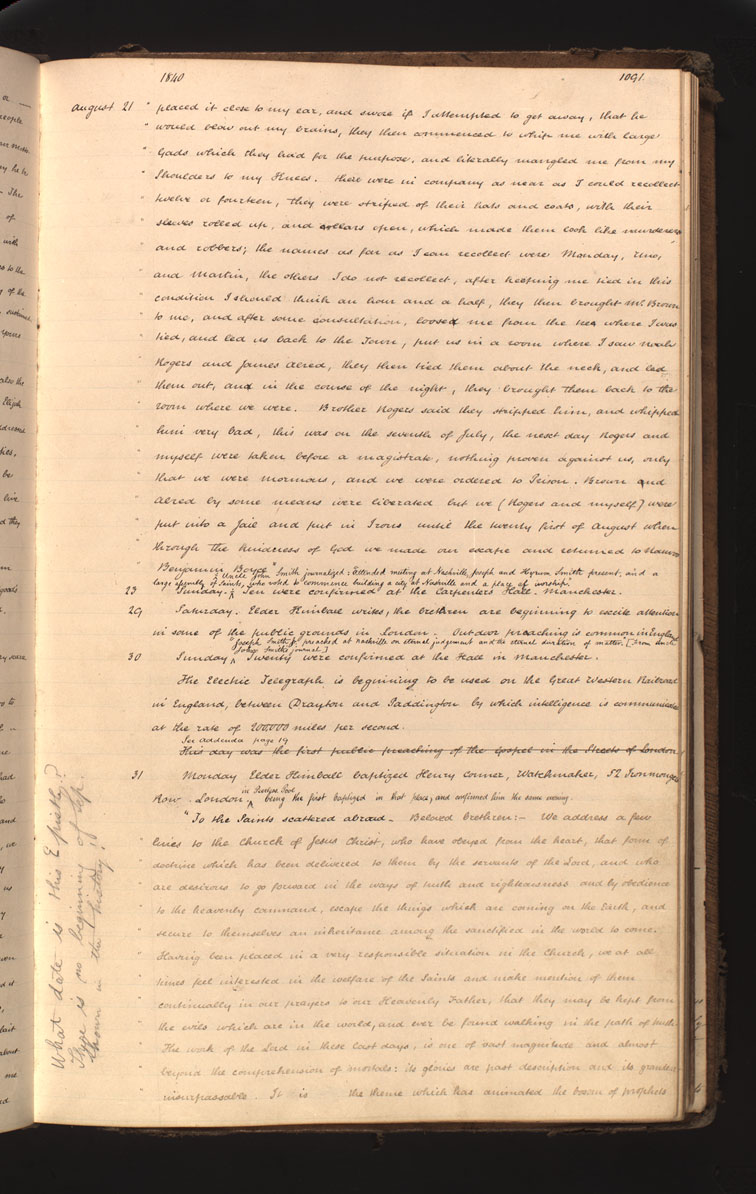 1840
1091
August 21 " placed it close to my ear, and swore if I attempted to get away, that he
" would blow out my brains, they then commenced to whip me with large
" Gads which they had for the purpose, and literally mangled me from my
" Shoulders to my Knees. there were in company as near as I could recollect
" twelve or fourteen, they were striped of their hats and coats, with their
" sleeves rolled up, and collars open, which made them look like murderers
" and robbers; the names as far as I can recollect were Monday, Uno,
" and Martin, the others I do not recollect, after keeping me tied in this
" condition I should think an hour and a half, they then brought Mr. Brown
" to me, and after some consultation, loosed me from the tree where I was
" tied, and led us back to the Town, put us in a room where I saw Noah
" Rogers and James Alred, they then tied them about the neck, and led
" them out, and in the course of the night, they brought them back to the
" room where we were. Brother Rogers said they stripped him, and whipped
" him very bad, this was on the seventh of July, the next day Rogers and
" myself were taken before a magistrate, nothing proven against us, only
" that we were mormons, and we were ordered to Prison. Brown and
" Alred by some means were liberated but we (Rogers and myself) were
" put into a Jail and put in Irons until the twenty first of August when
" through the Kindness of God we made our escape and returned to Nauvoo
Benjamin Boyce"
Uncle John Smith journalized: Attended meeting at Nashville, Joseph and Hyrum Smith present, and a
large assembly of Saints, who voted to commence building a city at Nashville and a place of worship.
23 Sunday. Ten were confirmed at the Carpenters Hall. Manchester.
29 Saturday. Elder Kimball writes, the brethren are beginning to excite attention
in some of the public grounds in London. Outdoor preaching is common in England
Joseph Smith Jr. preached at Nashville on eternal judgement and the eternal duration of matter. [From Uncle
John Smith's journal.]
30 Sunday Twenty were confirmed at the Hall in Manchester.
The Electric Telegraph is beginning to be used on the Great Western Railroad
in England, between Drayton and Paddington by which intelligence is communicated
at the rate of 200,000 miles per second.
See Addenda page 19
This day was the first public preaching of the Gospel in the Streets of London.
31 Monday Elder Kimball baptized Henry Corner, Watchmaker, 52 Ironmonger
Row. London, being the first baptized in that place, and confirmed him the same evening.
"To the Saints scattered abroad - Beloved brethren:- We address a few
" lines to the Church of Jesus Christ, who have obeyed from the heart, that form of
" doctrine which has been delivered to them by the servants of the Lord, and who
" are desirous to go forward in the ways of truth and righteousness and by obedience
" to the heavenly command, escape the things which are coming on the Earth, and
" secure to themselves an inheritance among the sanctified in the world to come.
" Having been placed in a very responsible situation in the Church, we at all
" times feel interested in the welfare of the Saints and make mention of them
" continually in our prayers to our Heavenly Father, that they may be kept from
" the evils which are in the world, and ever be found walking in the path of truth.
" The work of the Lord in these last days, is one of vast magnitude and almost
" beyond the comprehension of mortals: its glories are past description and its grandeur
" insurpassable. It is the theme which has animated the bosom of prophets
What date is this Epistle?
There is no beginning of Sep.
shown in the history!